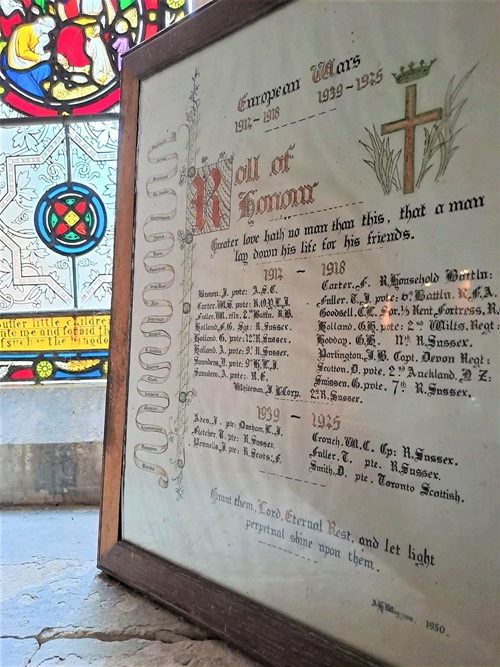 suffer little children
into me and forbid
such is the Kingdom
European Wars
1914 – 1918 1939 – 1945
Roll of
Honour
Greater love hath no man than this, that a man
lay down his life for his friends.
1914 – 1918
Brown. J. pvte: A.S.C.
Carter. W.S. pvte: K.O.Y.L.I.
Fuller. W. rfln. 2nd Battln. R.B.
Holland. F.G. Sgt: R. Sussex.
Holland. G. pvte: 12th R. Sussex.
Holland. A. pvte: 9th R. Sussex.
Saunders. A. pvte: R.E.
Whiteman. J. L/Corp. 2nd R. Sussex.
Carter. F. R. Household Battln:
Fuller. T. J. pvte: 6th Battln. R.F.A.
Goodsell. C.L. Spr. Kent. Fortress. R.
Holland. G.H. pvte: 2nd Wilts. Regt:
Hobday. G.H. 11th R. Sussex.
Partington. J.B. Capt. Devon Regt:
Scotton. D. pvte. 2nd Auckland. N. Z:
Smissen. G. pvte. 7th R. Sussex.
1939 – 1945
Fletcher. T. pte: R. Sussex.
Pennells. J. pte: R. Scots. F.
Crouch. W. C. Cp: R. Sussex.
Fuller. T. pte. R. Sussex.
Smith. D. pte. Toronto Scottish.
Grant them, Lord, Eternal Rest, and let light
perpetual shine upon them.
1950.